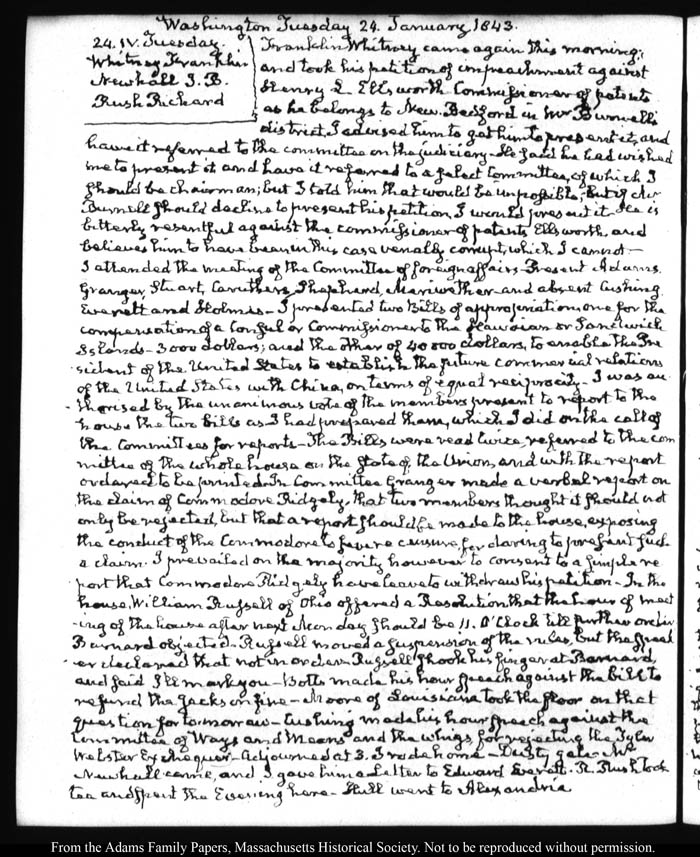 Washington Tuesday 24. January 1843.
24. IV. Tuesday.
Whitney Franklin
Newhall I. B.
Rush Richard
Franklin Whitney came again this morning;
and took his petition of impeachment against
Henry L. Ellsworth Commissioner of patents
as he belongs to New-Bedford in Mr Burnell's
district, I advised him to get him to present it, and
have it referred to the committee on the judiciary. He said he had wished
me to present it and have it referred to a select Committee, of which I
should be chairman; but I told him that would be impossible; but if Mr
Burnell should decline to present his petition, I would present it. He is
bitterly resentful against the commissioner of patents Ellsworth, and
believes him to have been in this case venally corrupt, which I cannot—
I attended the meeting of the Committee of foreign affairs. Present Adams.
Granger, Stuart, Caruthers, Shepherd, Meriwether—and absent Cushing
Everett and Holmes—I presented two Bills of appropriation; one for the
compensation of a Consul or Commissioner to the Hawaian or Sandwich
Islands—3000 dollars; and the other of 40000 dollars, to enable the Pre
sident of the United States to establish the future commercial relations
of the United States with China, on terms of equal reciprocity—I was au
thorised by the unanimous vote of the members present to report to the
house the two bills as I had prepared them, which I did on the call of
the Committees for reports—The Bills were read twice, referred to the com
mittee of the whole house on the State of the Union, and with the report
ordered to be printed. In Committee Granger made a verbal report on
the claim of Commodore Ridgely, that two members thought it should not
only be rejected, but that a report should be made to the house, exposing
the conduct of the Commodore to severe censure for daring to present such
a claim. I prevailed on the majority however to consent to a simple re
port that Commodore Ridgely have leave to withdraw his petition—In the
house, William Russell of Ohio offered a Resolution that the hour of meet
ing of the house after next Monday should be 11. O'Clock till further order
Barnard objected—Russell moved a suspension of the rules, but the Speak
er declared that not in order. Russell shook his finger at Barnard,
and said I'll mark you—Botts made his hour speech against the Bill to
refund the Jackson fine—Moore of Louisiana took the floor on that
question for to-morrow—Cushing made his hour speech against the
Committee of Ways and Means and the whigs, for rejecting the Tyler
Webster Exchequer—Adjourned at 3. I rode home—Dusty gale—Mr
Newhall came, and I gave him a Letter to Edward Everett. R. Rush took
tea and spent the Evening here—Hull went to Alexandria
From the Adams Family Papers, Massachusetts Historical Society. Not to be reproduced without permission.